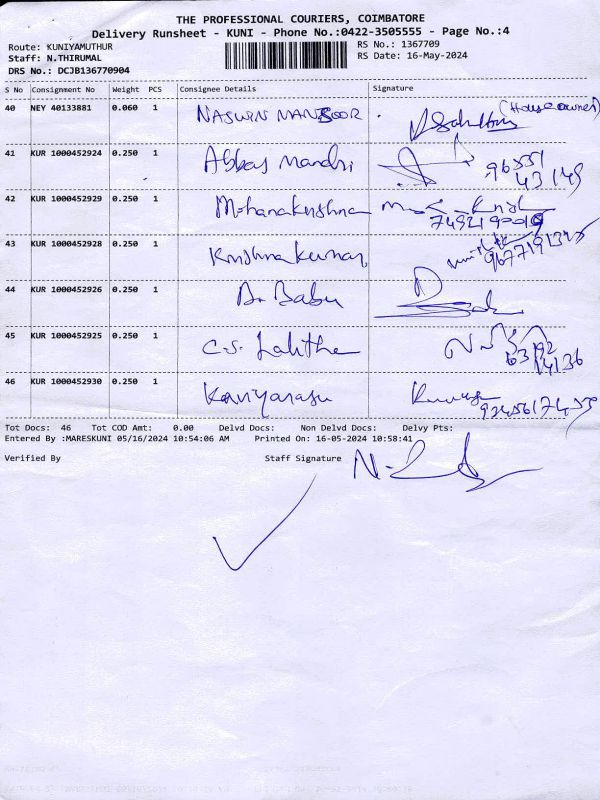 THE PROFESSIONAL COURIERS, COIMBATORE
Delivery Runsheet - KUNI - Phone No.:0422-3505555 - Page No.:4
Route: KUNIYAMUTHUR RS No.: 1367709
Staff: N.THIRUMAL RS Date: 16-May-2024
DRS No.: DCJB136770904
S No Consignment No Weight PCS Consignee Details Signature
40 NEY 40133881 0.060 1 NASWIN MANSOOR (House owner)
41 KUR 1000452924 0.250 1 Abbas Mandri
42 KUR 1000452929 0.250 1 Mohanakrishna
43 KUR 1000452928 0.250 1 Krishnakumar
44 KUR 1000452926 0.250 1 A. Babu
45 KUR 1000452925 0.250 1 C.S. Lalitha
46 KUR 1000452930 0.250 1 Kaviyarasu
Tot Docs: 46 Tot COD Amt: 0.00 Delvd Docs: Non Delvd Docs: Delvy Pts:
Entered By :MARESKUNI 05/16/2024 10:54:06 AM Printed On: 16-05-2024 10:58:41
Verified By Staff Signature